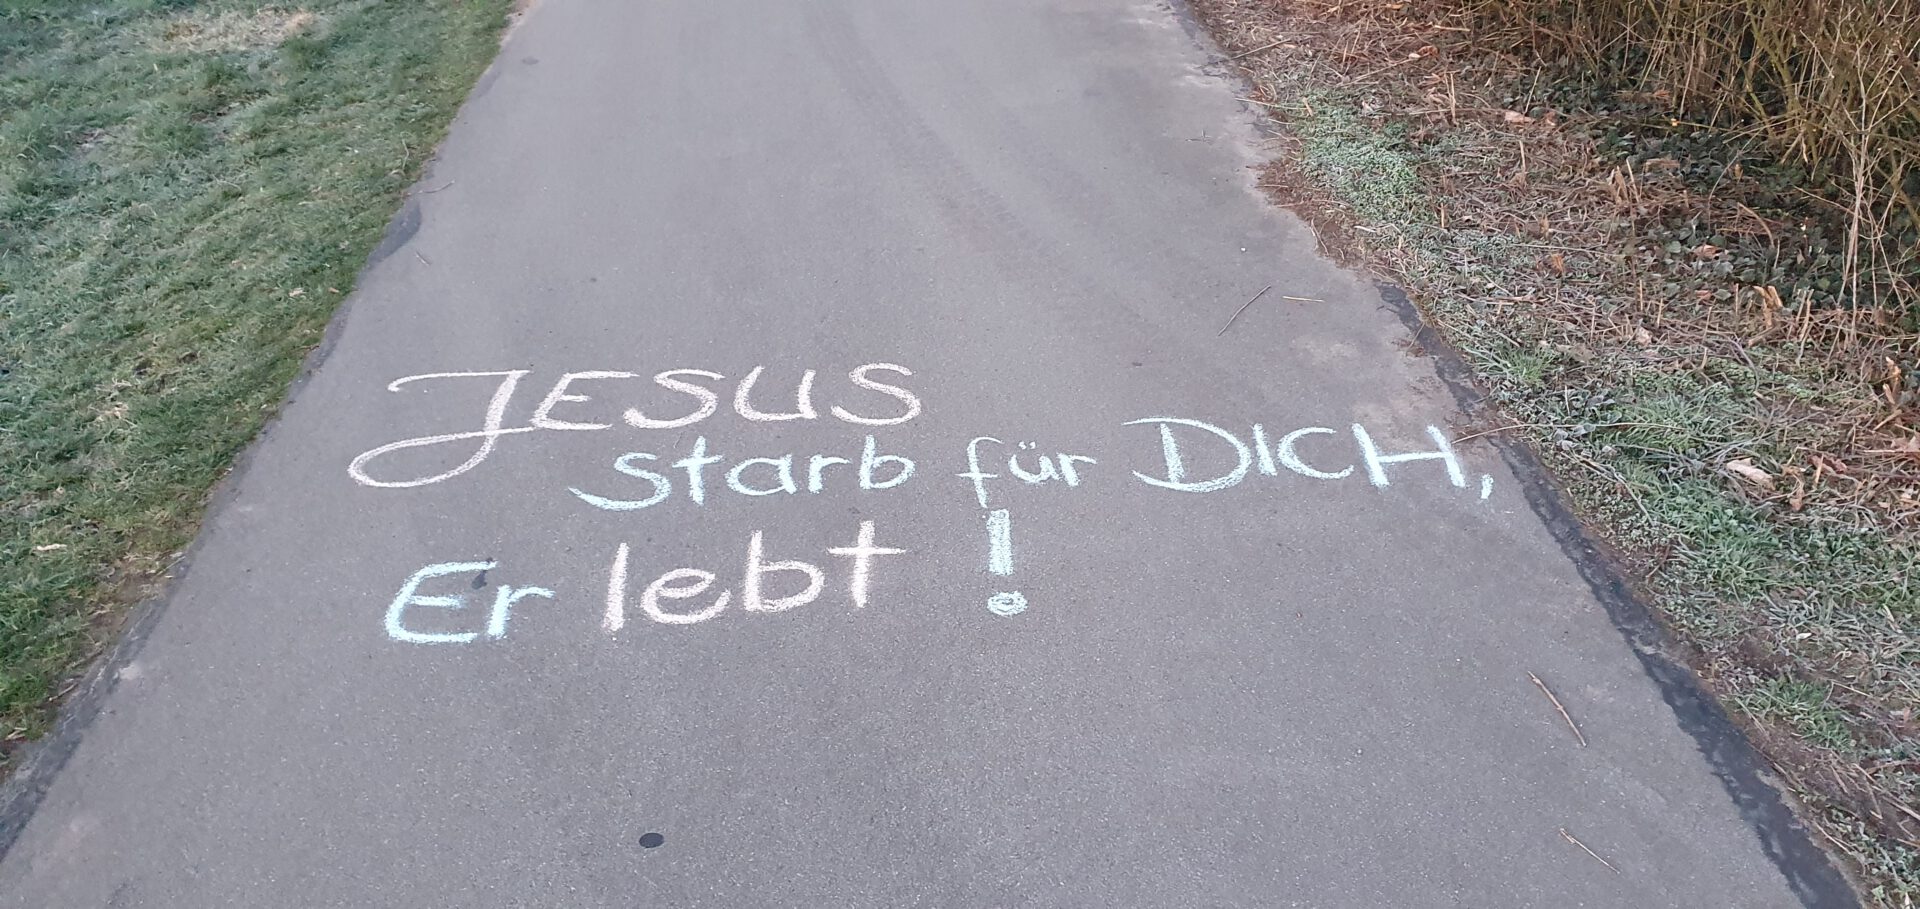 JESUS
starb für DICH,
Er lebt!